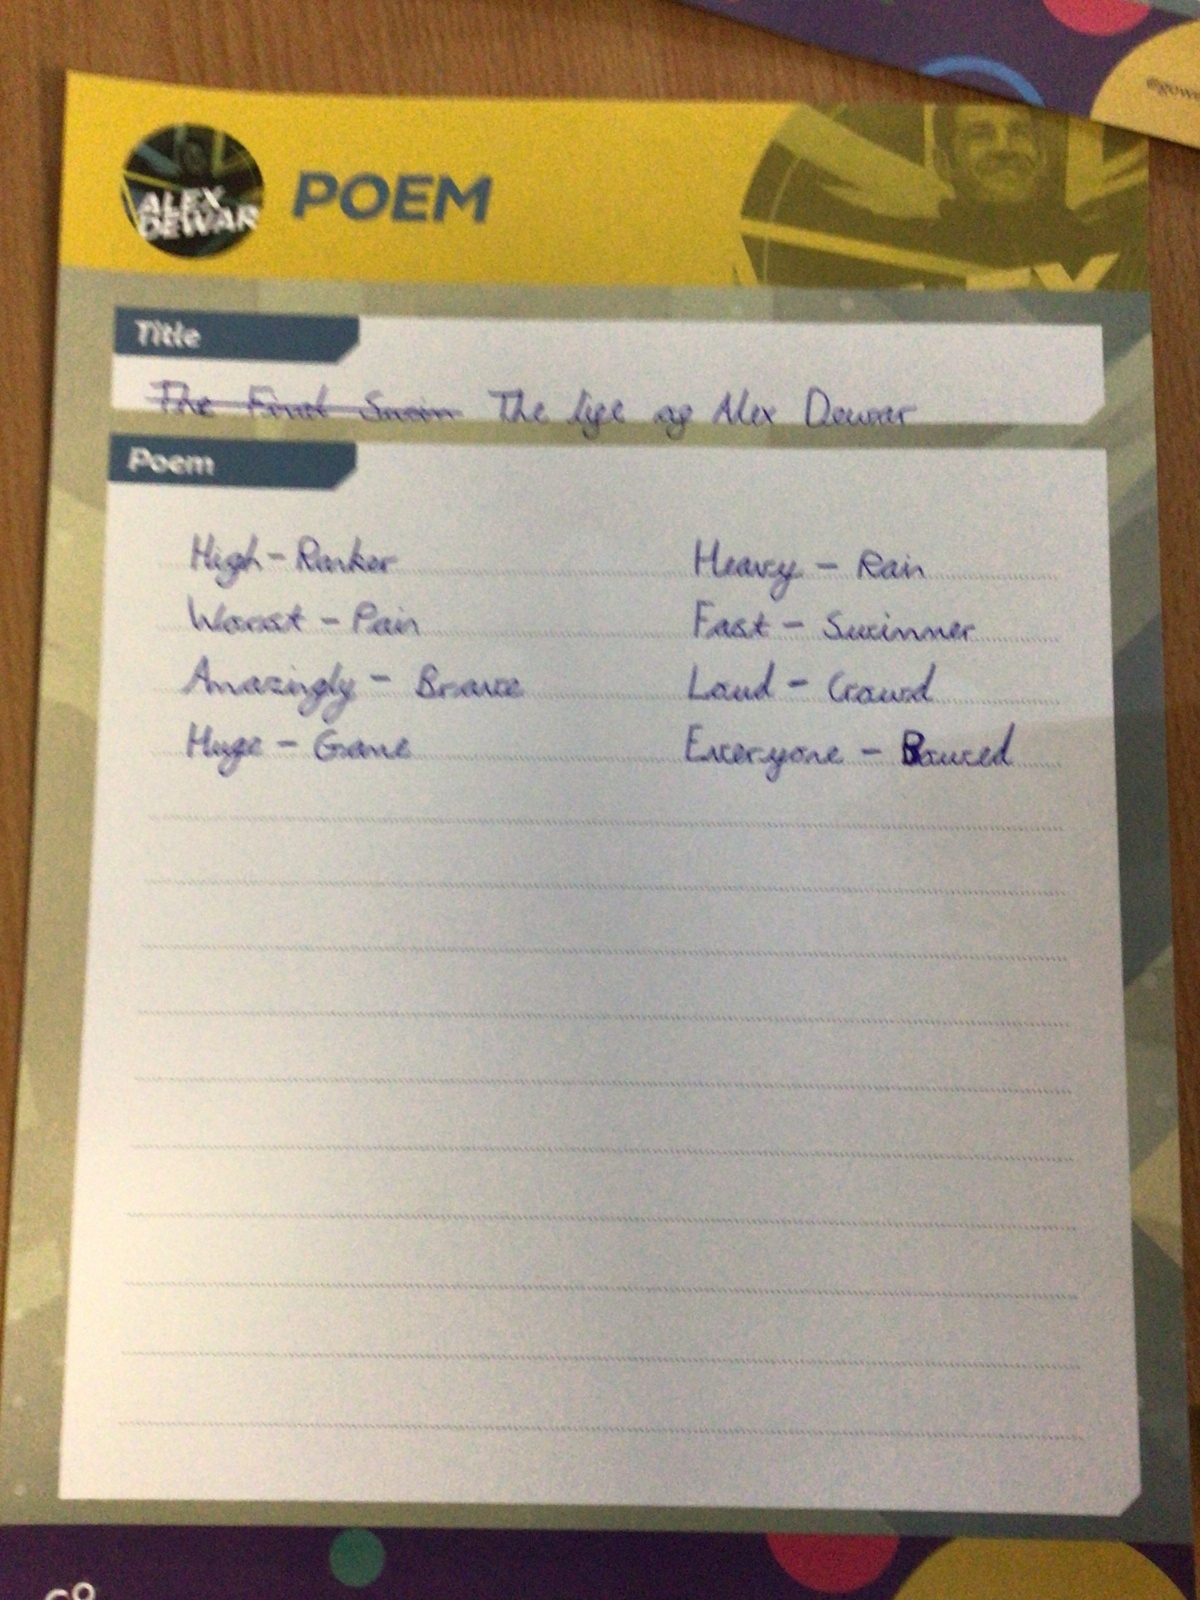 @gowe
ALEX
DEWAR
POEM
EX
Title
The Final Swim The life of Alex Dewar
Poem
High - Ranker
Worst - Pain
Amazingly - Brave
Huge - Game
Heavy - Rain
Fast - Swimmer
Loud - Crowd
Everyone - Bowed